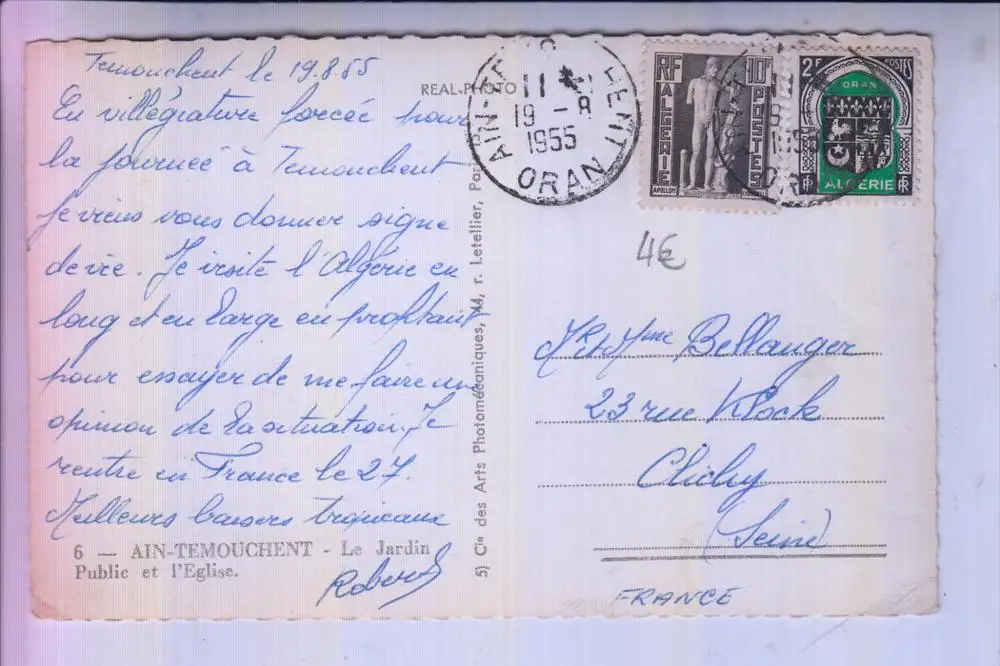 Temouchent le 19.8.55
En villégiature forcée pour
la journée à Temouchent
je viens vous donner signe
de vie. Je visite l'Algérie en
long et en large en profitant
pour essayer de me faire un
opinion de la situation. Je
rentre en France le 27.
Meilleurs baisers tropicaux
Robert
6 — AIN-TEMOUCHENT - Le Jardin
Public et l'Eglise.
REAL-PHOTO
5) Cie des Arts Photomécaniques, 44, r. Letellier, Paris
AIN-TE HENT
19 - 8
1955
ORAN
RF
10F
ALGERIE
POSTES
APOLLON
2F
POSTES
ORAN
RF
ALGERIE
RF
4€
Mr et Mme Bellanger
23 rue Klock
Clichy
(Seine)
FRANCE